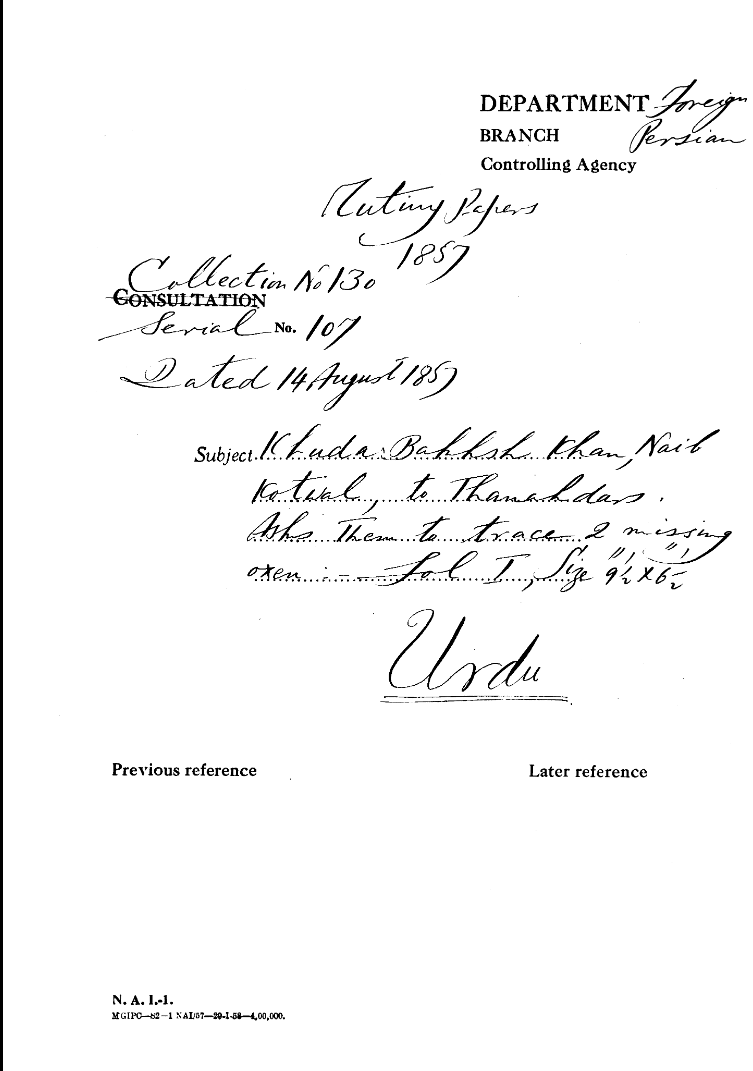 DEPARTMENT Foreign
BRANCH Persian
Controlling Agency
Mutiny Papers
1857
Collection No 130
CONSULTATION
Serial No. 107
Dated 14 August 1857
Subject. Khuda Bakhsh Khan, Naib
Kotwal, to Thanahdars.
Asks them to trace 2 missing
oxen :- Fol I, Size 9½" x 6½"
Urdu
Previous reference
Later reference
N. A. I.-1.
MGIPC—82—1 NAI/57—29-1-58—4,00,000.